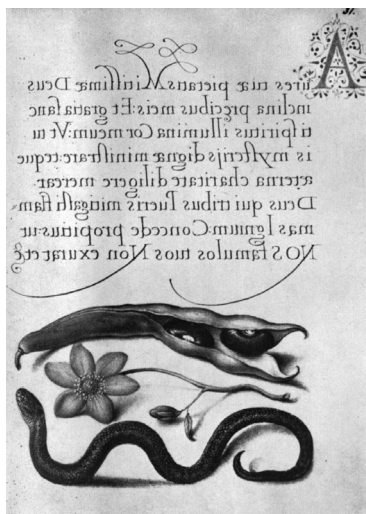 Aures tuæ pietatis Mitissimæ Deus
inclina pręcibus meis: Et gratia sanc
ti spiritus illumina Cor meum: Vt tu
is mysterijs dignæ ministrare: teque
æterna charitate diligere merear.
Deus qui tribus Pueris mitigasti flam=
mas Ignium: Concede propitius: ut
NOS famulos tuos Non exurat etc